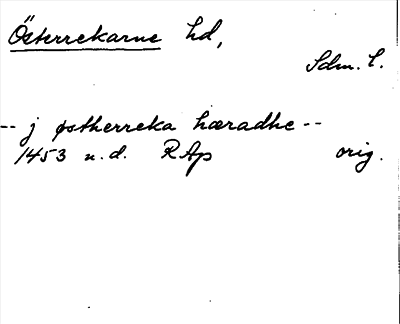 Österrekarne hd,
Sdm. l.
-- j østherreka hæradhe --
1453 u.d. RAp orig.